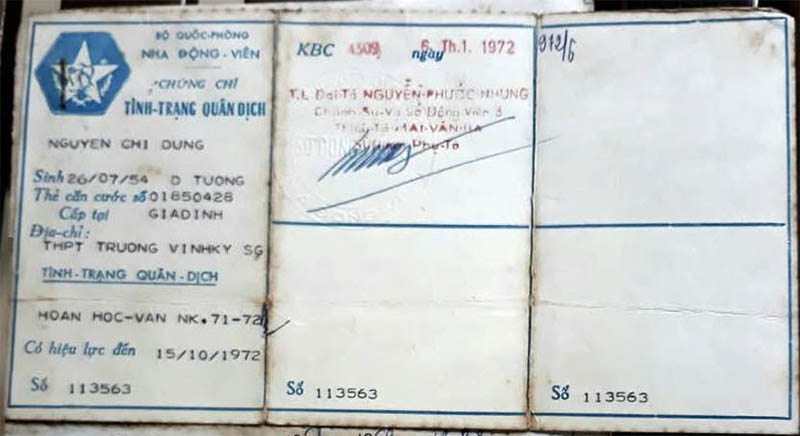 BỘ QUỐC-PHÒNG
NHA ĐỘNG-VIÊN
CHỨNG CHỈ
TÌNH-TRẠNG QUÂN DỊCH
NGUYEN CHI DUNG
Sinh 26/07/54 D TUONG
Thẻ căn cước số 01850428
Cấp tại GIADINH
Địa-chỉ:
THPT TRUONG VINHKY SG
TÌNH-TRẠNG QUÂN-DỊCH
HOAN HOC-VAN NK.71-72
Có hiệu lực đến 15/10/1972
Số 113563
KBC 4509 ngày 6 Th.1. 1972
T.L Đại-Tá NGUYỄN-PHƯỚC NHUNG
Chánh-Sự-Vụ Sở Động Viên 3
Thiếu-Tá MAI-VĂN-BA
Phụ-Tá
Số 113563
912/6
Số 113563